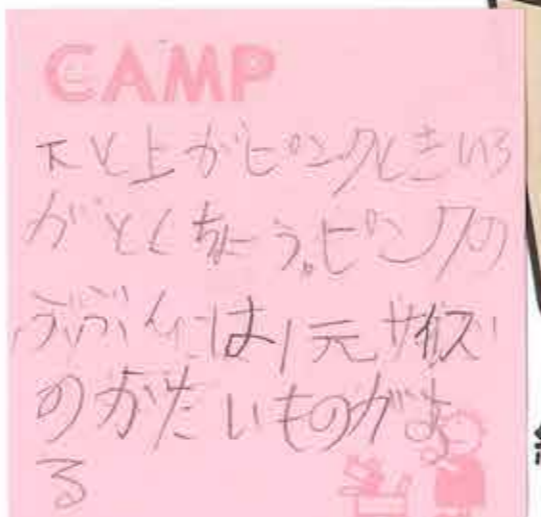 CAMP
下と上がピンクときいろ
がとくちょう。ピンクの
ぶぶんには1元サイズ
のかたいものがよ
る